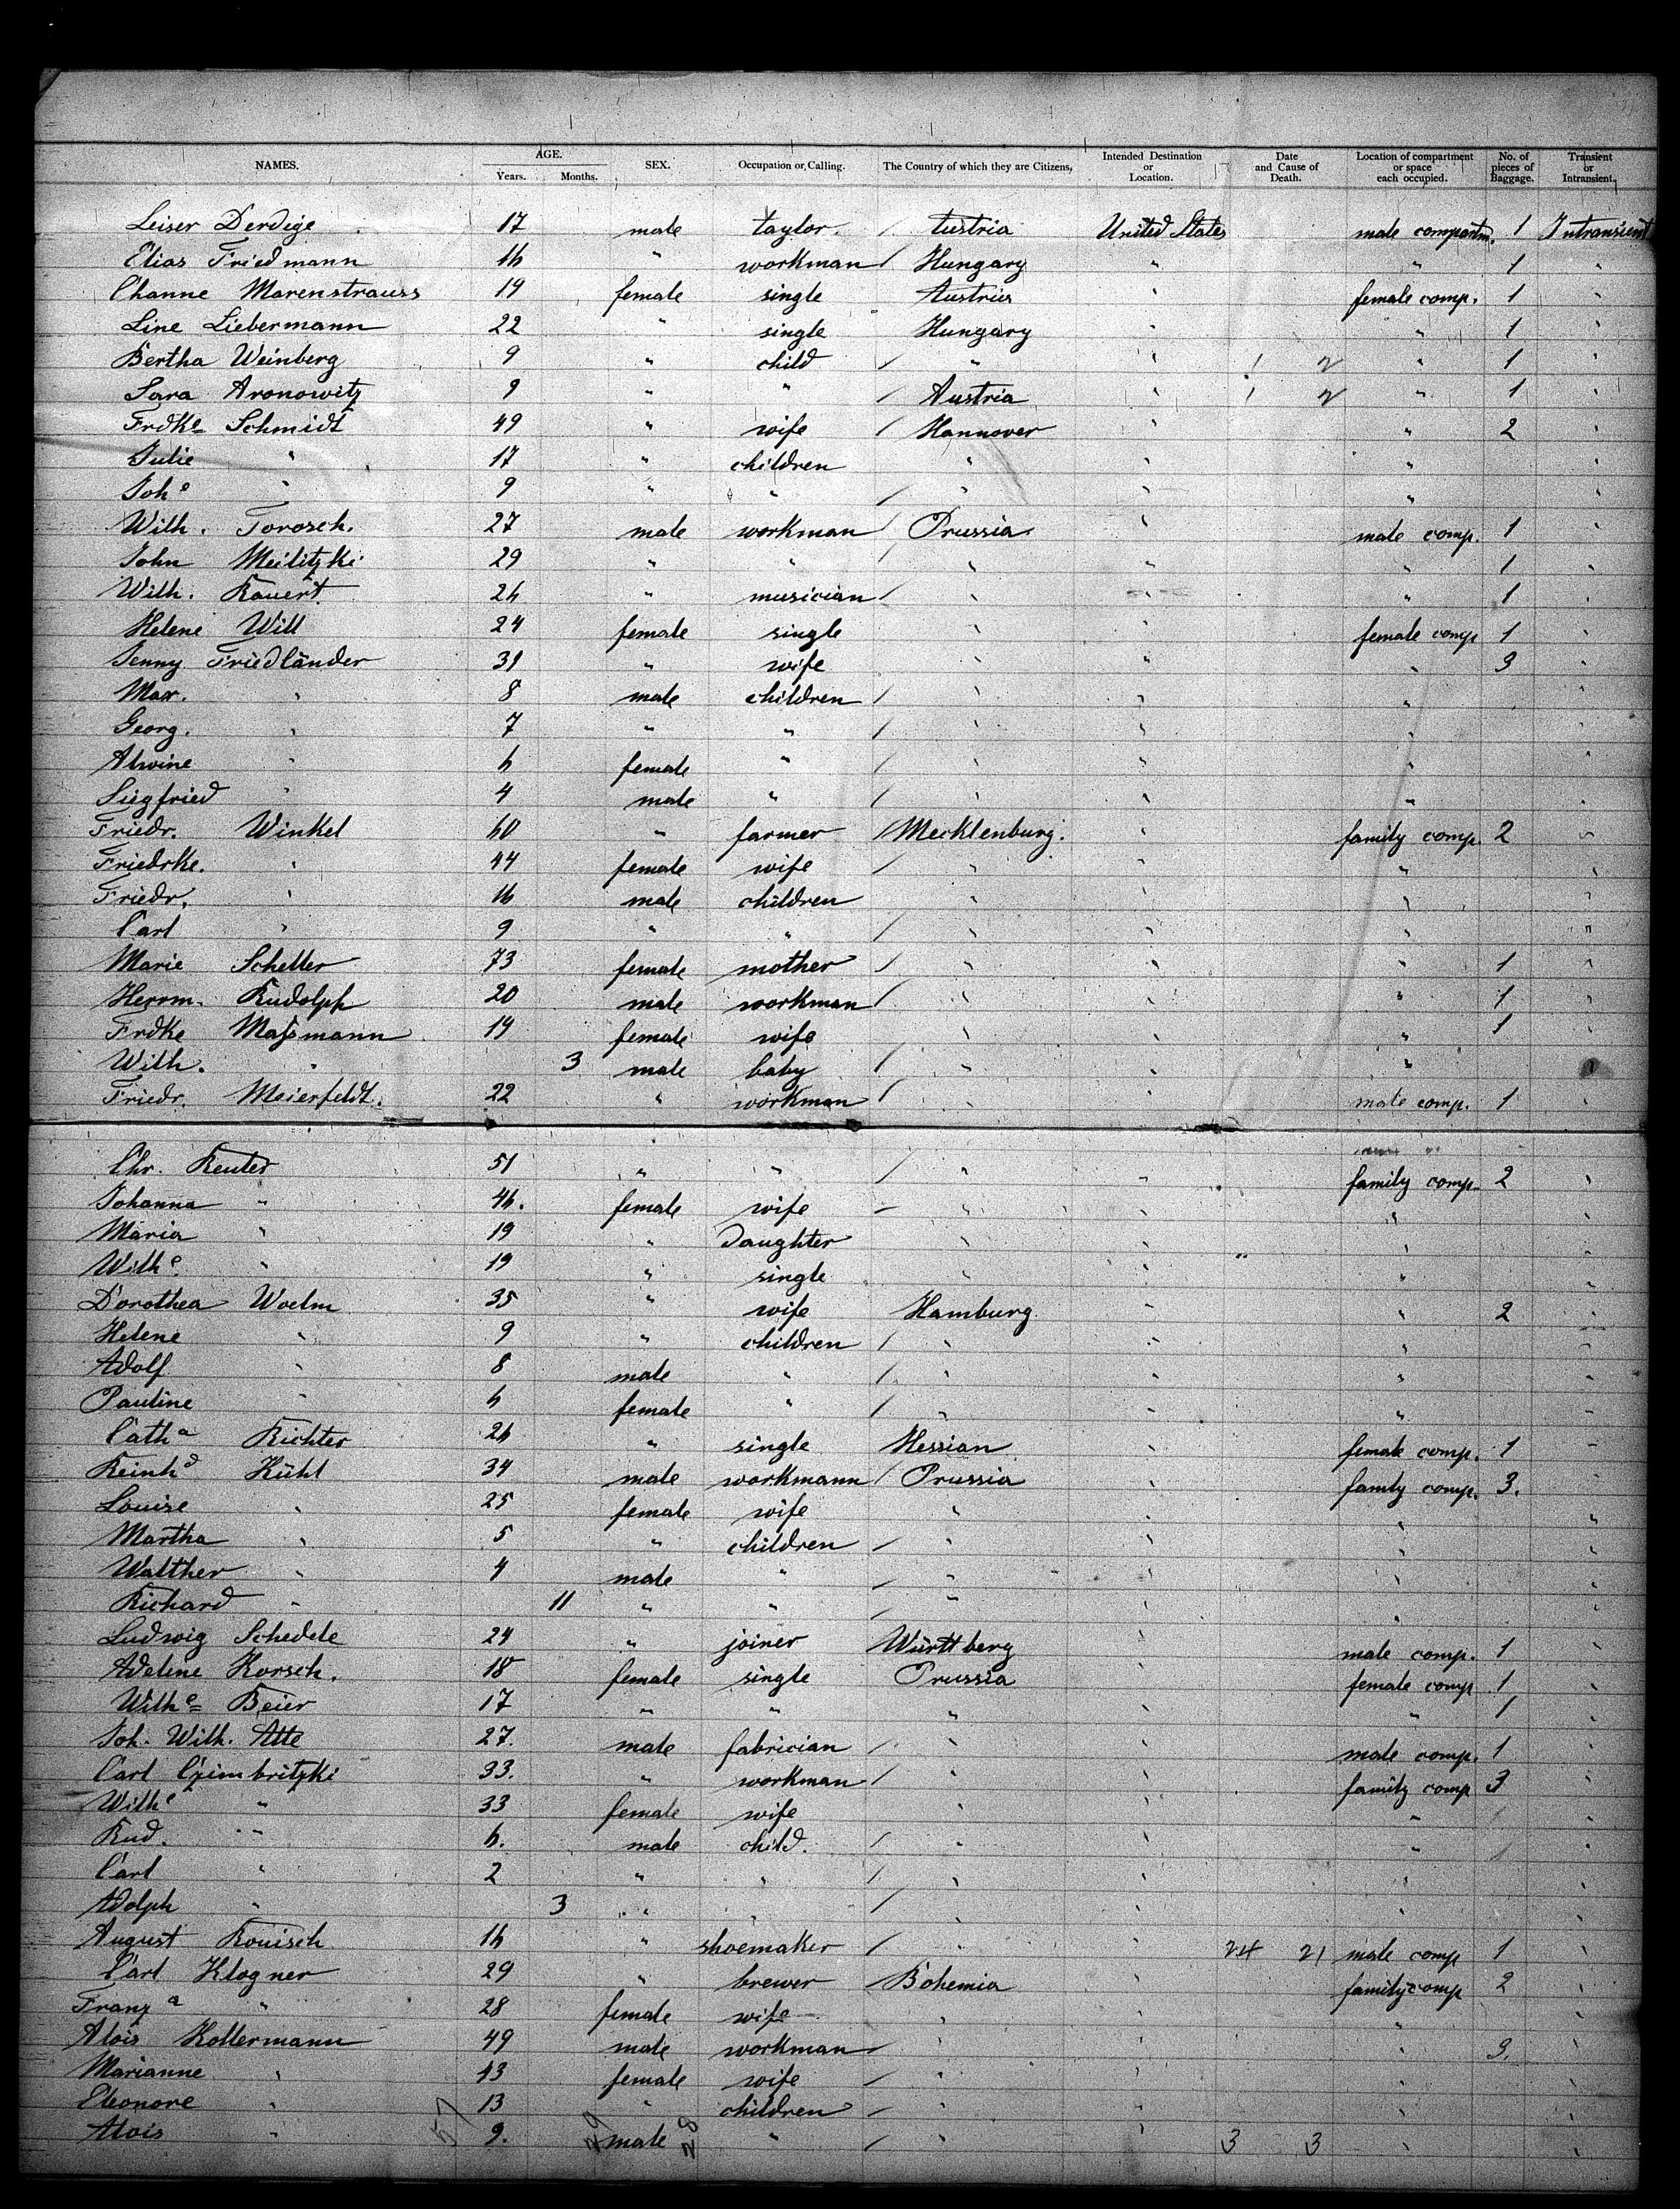 NAMES. AGE. Years. Months. SEX. Occupation or Calling. The Country of which they are Citizens, Intended Destination or Location. Date and Cause of Death. Location of compartment or space each occupied. No. of pieces of Baggage. Transient or Intransient.
Leiser Derdige 17 male taylor / Austria United States male compartm. 1 Intransient
Elias Friedmann 16 " workman / Hungary " " 1 "
Channe Marenstrauss 19 female single Austria " female comp. 1 "
Line Liebermann 22 " single Hungary " " 1 "
Bertha Weinberg 9 " child / " " 1 2 " 1 "
Sara Aronowitz 9 " " / Austria " 1 2 " 1 "
Frdke Schmidt 49 " wife / Hannover " " 2 "
Julie " 17 " children " " " "
Johe " 9 " " / " " " "
Wilh. Torosch. 27 male workman / Prussia " male comp. 1 "
John Meilitzki 29 " " / " " " 1 "
Wilh. Kauert 26 " musician / " " " 1 "
Helene Will 24 female single " " female comp 1 "
Jenny Friedländer 31 " wife " " " 3 "
Max. " 8 male children / " " " "
Georg. " 7 " " / " " " "
Alwine " 6 female " / " " " "
Siegfried " 4 male " / " " " "
Friedr. Winkel 60 " farmer / Mecklenburg. " family comp. 2 "
Friedrke. " 44 female wife / " " " "
Friedr. " 16 male children " " " "
Carl " 9 " " / " " " "
Marie Scheller 73 female mother / " " " 1 "
Herrm. Rudolph 20 male workman / " " " 1 "
Frdke Maſsmann 19 female wife " " " 1 "
Wilh. " 3 male baby / " " " "
Friedr. Meierfeldt. 22 " workman / " " male comp. 1 "
Chr. Reuter 51 " " / " " family comp. 2 "
Johanna " 46. female wife / " " " "
Maria " 19 " Daughter " " " "
Wilhe. " 19 " single " " " "
Dorothea Woelm 35 " wife Hamburg " " 2 "
Helene " 9 " children / " " " "
Adolf " 8 male " / " " " "
Pauline " 6 female " / " " " "
Catha Richter 26 " single Hessian " female comp. 1 "
Reinhd Kühl 34 male workmann / Prussia " family comp. 3. "
Louise " 25 female wife " " " "
Martha " 5 " children / " " " "
Walther " 4 male " / " " " "
Richard " 11 " " / " " " "
Ludwig Schedele 24 " joiner Württberg " male comp. 1 "
Adeline Korsch. 18 female single Prussia " female comp 1 "
Wilhe Beier 17 " " " " " 1 "
Joh. Wilh. Atte 27. male fabrician / " " male comp. 1 "
Carl Czimbritzki 33. " workman / " " family comp 3 "
Wilhe " 33 female wife " " " "
Rud. " 6. male child. / " " " "
Carl " 2 " " / " " " "
Adolph " 3 " " / " " " "
August Kouisch 16 " shoemaker / " " 24 21 male comp 1 "
Carl Klogner 29 " brewer / Bohemia " family comp 2 "
Franza " 28 female wife " " " "
Alois Kollermann 49 male workman / " " " 3. "
Marianne " 43 female wife / " " " "
Eleonore " 13 " children / " " " "
Alois " 9. male " / " " 3 3 " "
57 29 28